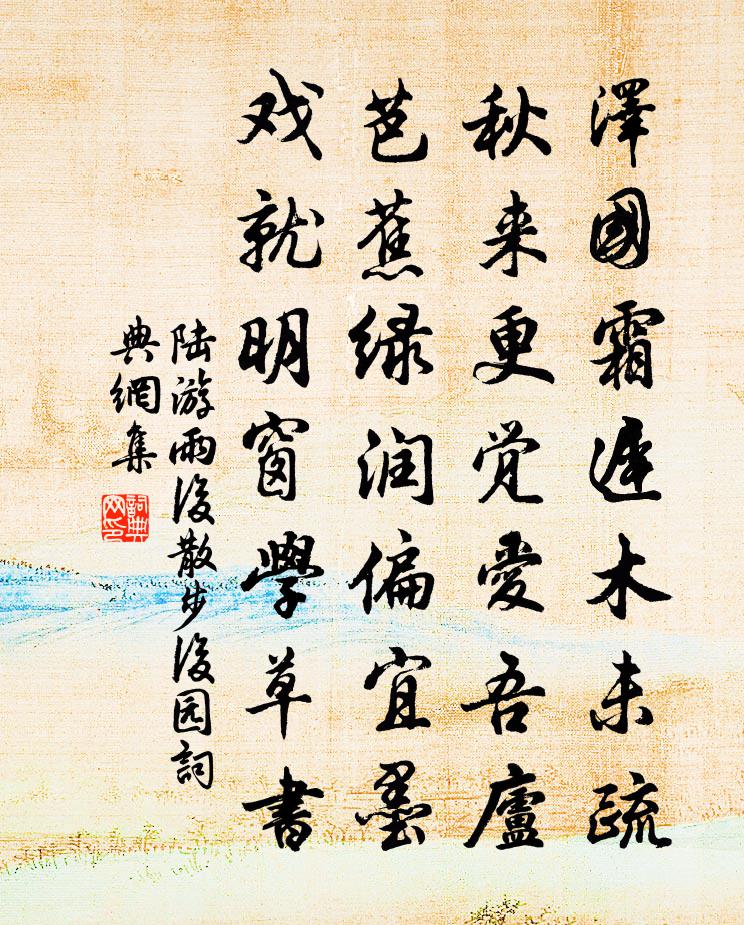 澤國霜遲木未疏
秋来更覚愛吾廬
芭蕉绿润偏宜墨
戏就明窗學草書
陆游雨後散步後园詞
典網集
詞典网印